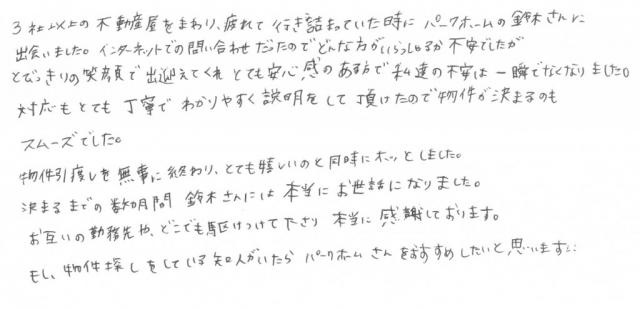 3社以上の不動産屋をまわり、疲れて行き詰まっていた時にパークホームの鈴木さんに
出会いました。インターネットでの問い合わせだったのでどんな方がいらっしゃるか不安でしたが
とびっきりの笑顔で出迎えてくれとても安心感のある方で私達の不安は一瞬でなくなりました。
対応もとても丁寧でわかりやすく説明をして頂けたので物件が決まるのも
スムーズでした。
物件引渡しを無事に終わり、とても嬉しいのと同時にホッとしました。
決まるまでの数ヶ月間鈴木さんには本当にお世話になりました。
お互いの勤務先や、どこでも駆けつけて下さり本当に感謝しております。
もし、物件探しをしている知人がいたらパークホームさんをおすすめしたいと思います